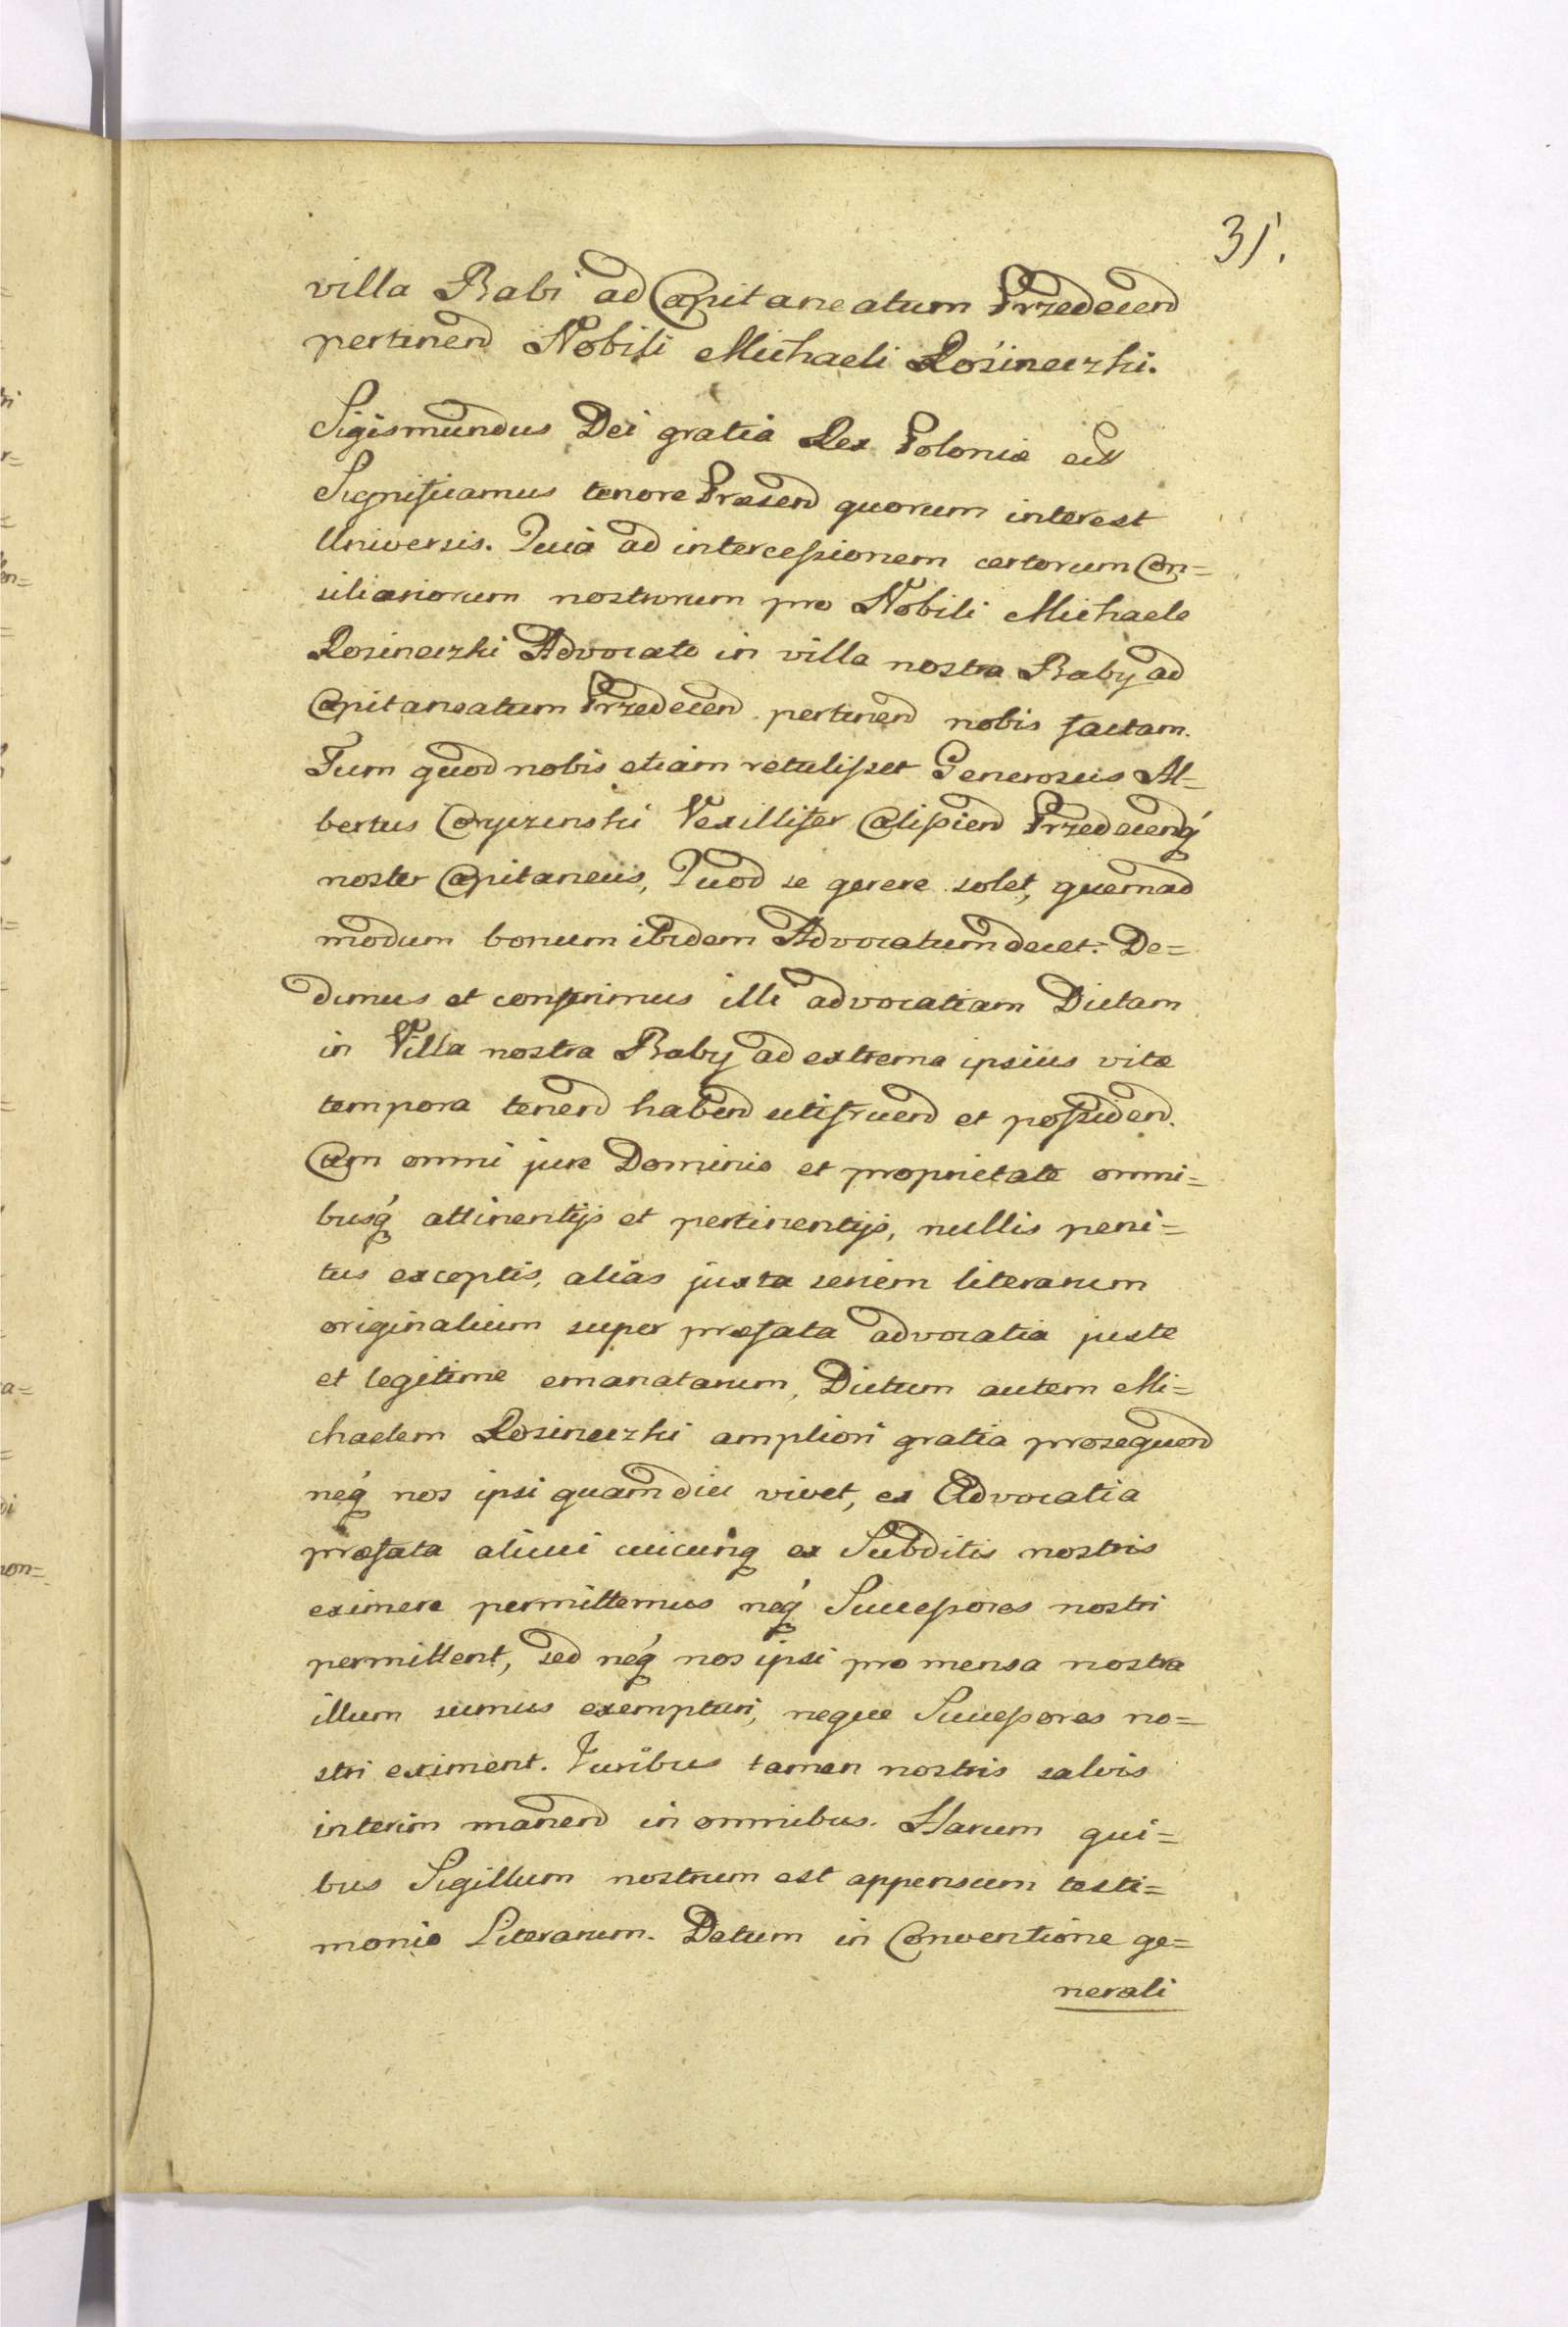 31.
villa Babi ad Capitaneatum Przedecen̄
pertinen̄ Nobili Michaeli Rosineczki.
Sigismundus Dei gratia Rex Poloniæ ett
Significamus tenore Præsen̄ quorum interest
Universis. Quia ad intercessionem certorum Con=
siliariorum nostrorum pro Nobili Michaele
Rosineczki Advocato in villa nostra Baby ad
Capitaneatum Przedecen̄ pertinen̄ nobis factam.
Tum quod nobis etiam retulisset Generosus Al=
bertus Coryczinski Vexillifer Calissien̄ Przedecenq́
noster Capitaneus, Quod se gerere solet, quemad
modum bonum ibidem Advocatum decet. De=
dimus et conferimus illi advocatiam Dictam
in Villa nostra Baby ad extrema ipsius vitæ
tempora tenen̄ haben̄ utifruen̄ et possiden̄.
Cum omni jure Dominio et proprietate omni=
busq́ attinentijs et pertinentijs, nullis peni=
tus exceptis, alias juxta seriem literarum
originalium super præfata advocatia juste
et legitime emanatarum, Dictum autem Mi=
chaelem Rosineczki ampliori gratia prosequen̄
neq́ nos ipsi quamdiu vivet, ex Advocatia
præfata alicui cuicunq́ ex Subditis nostris
eximere permittemus neq́ Successores nostri
permittent, sed neq́ nos ipsi pro mensa nostra
illum sumus exempturi, neque Successores no=
stri eximent. Juribus tamen nostris salvis
interim manen̄ in omnibus. Harum qui=
bus Sigillum nostrum est appensum testi=
monio Literarum. Datum in Conventione ge=
nerali